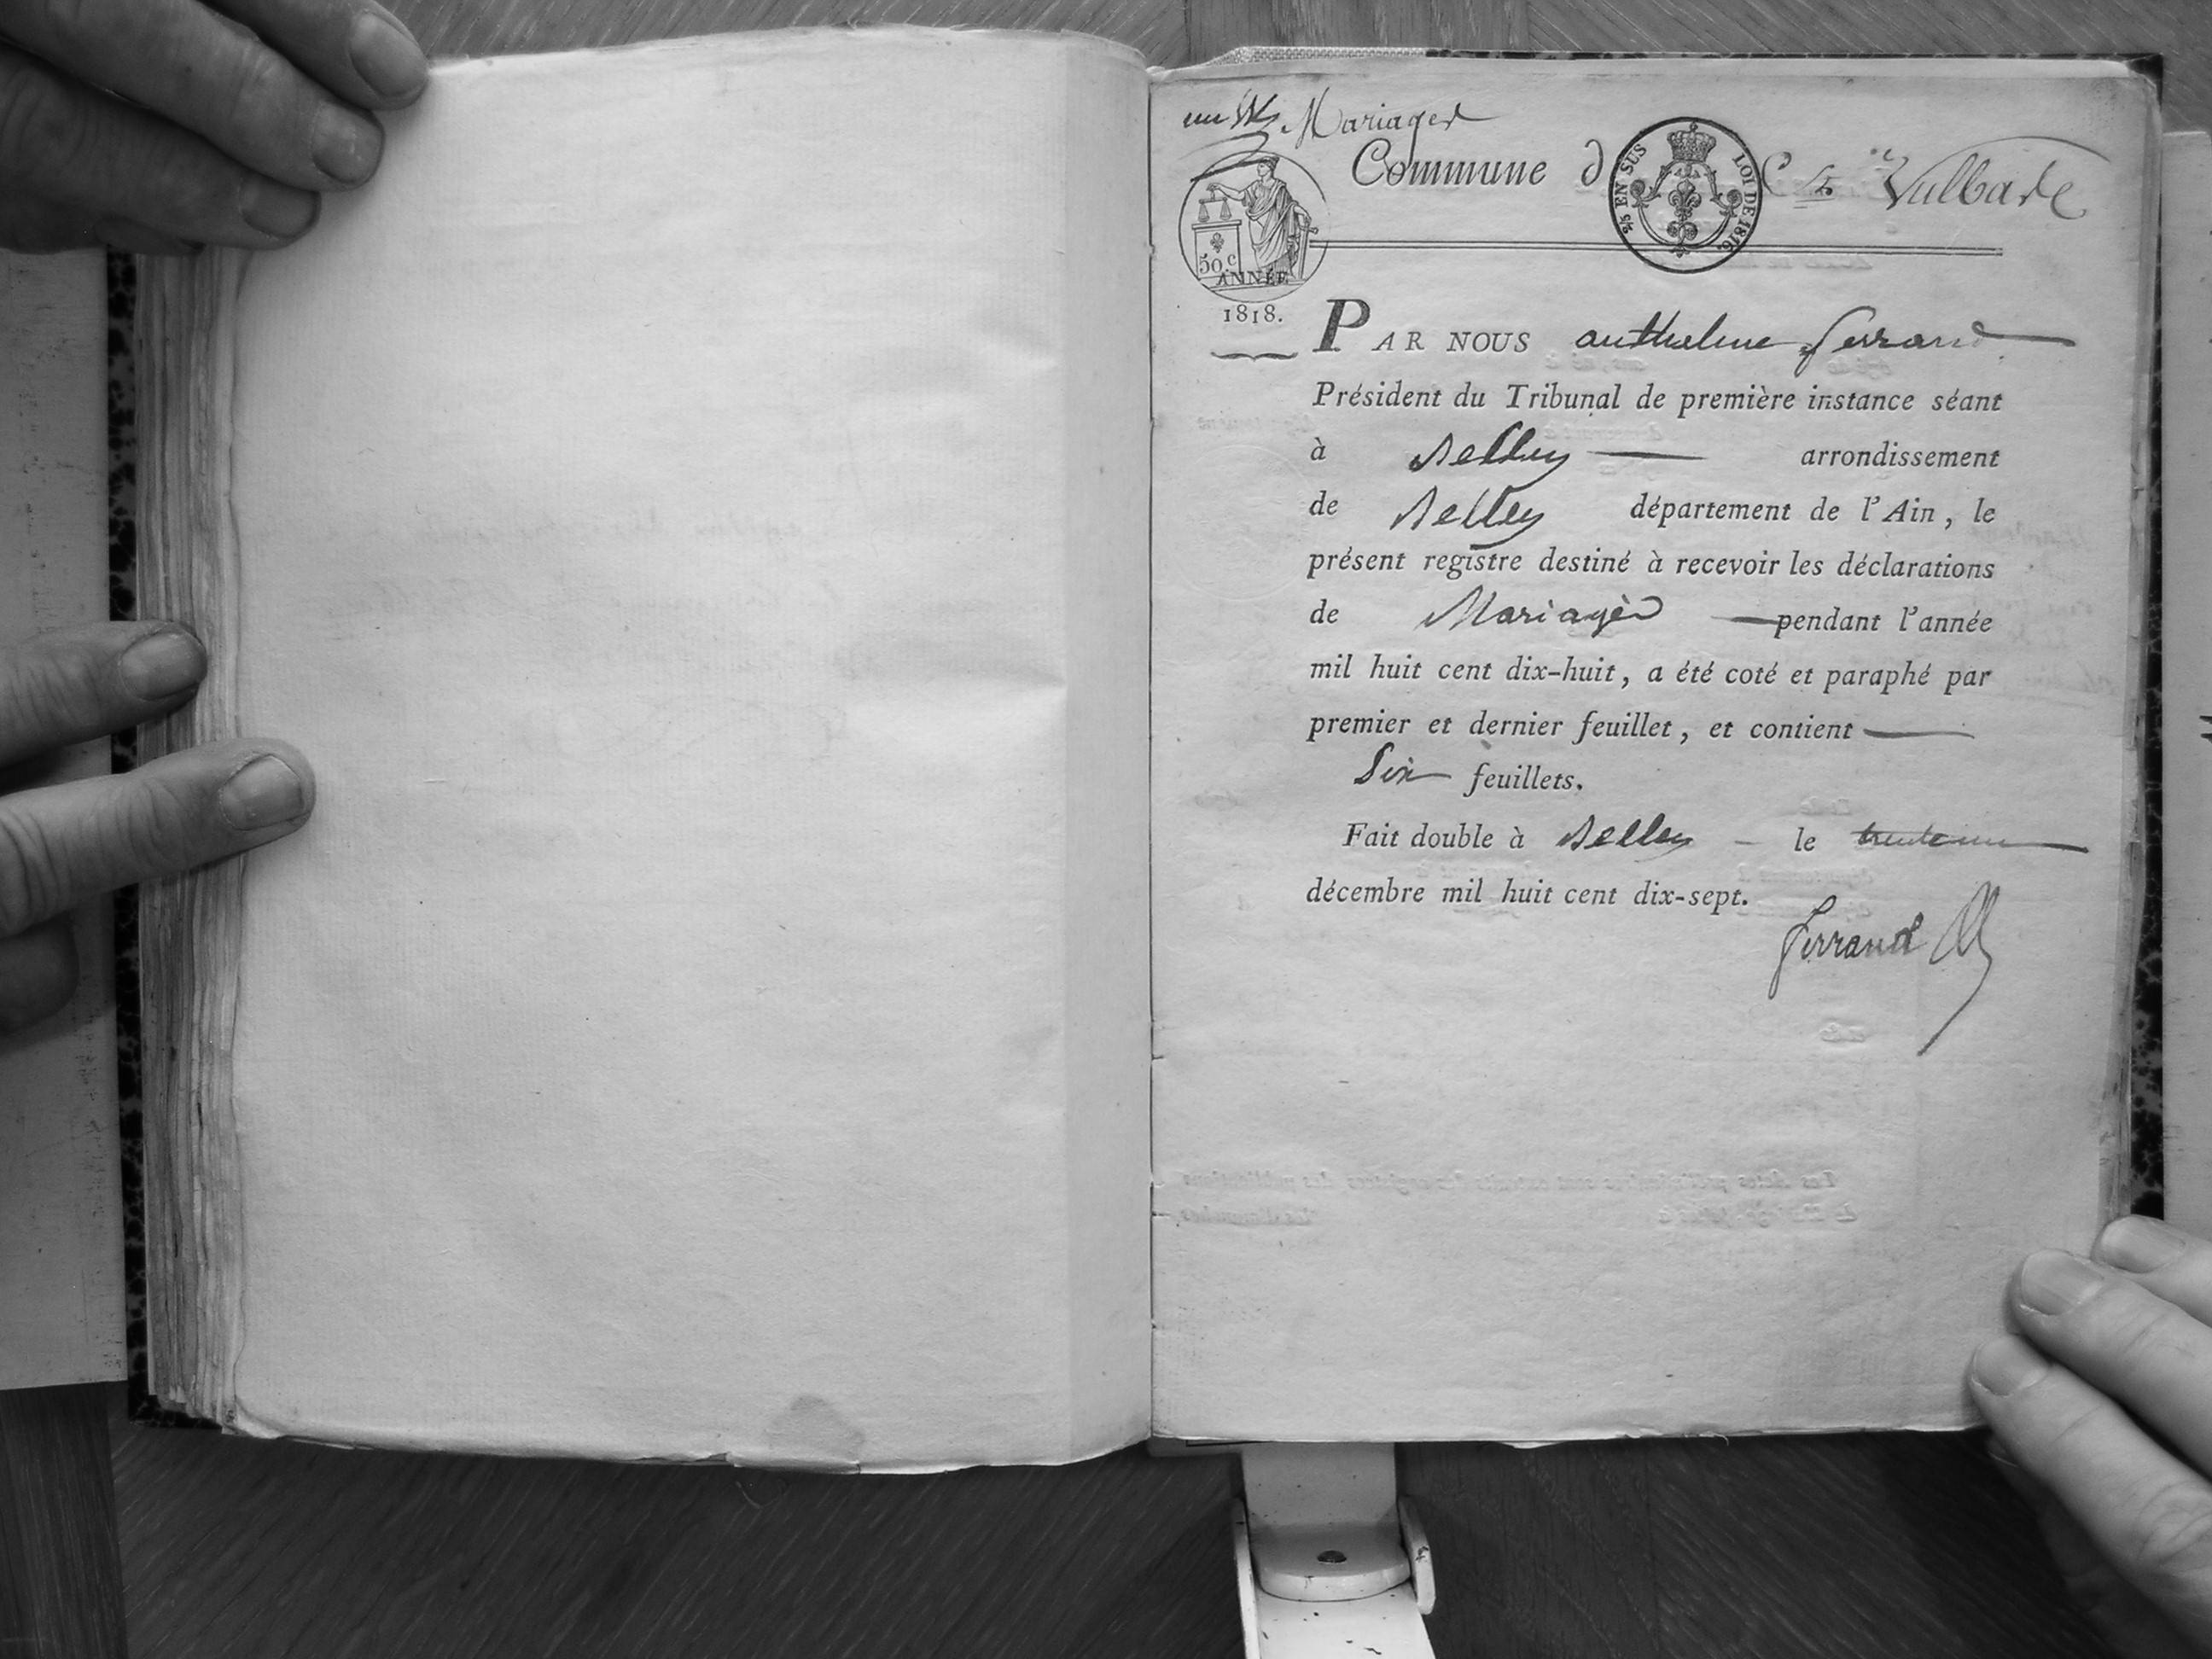 un Mariages
Commune de St Vulbas
2/5 EN SUS LOI DE 1816.
50 c
ANNÉE
1818.
PAR NOUS anthelme ferrand
Président du Tribunal de première instance séant
à Belley arrondissement
de Belley département de l'Ain, le
présent registre destiné à recevoir les déclarations
de Mariages pendant l'année
mil huit cent dix-huit, a été coté et paraphé par
premier et dernier feuillet, et contient
Six feuillets.
Fait double à Belley le trente un
décembre mil huit cent dix-sept.
ferrand